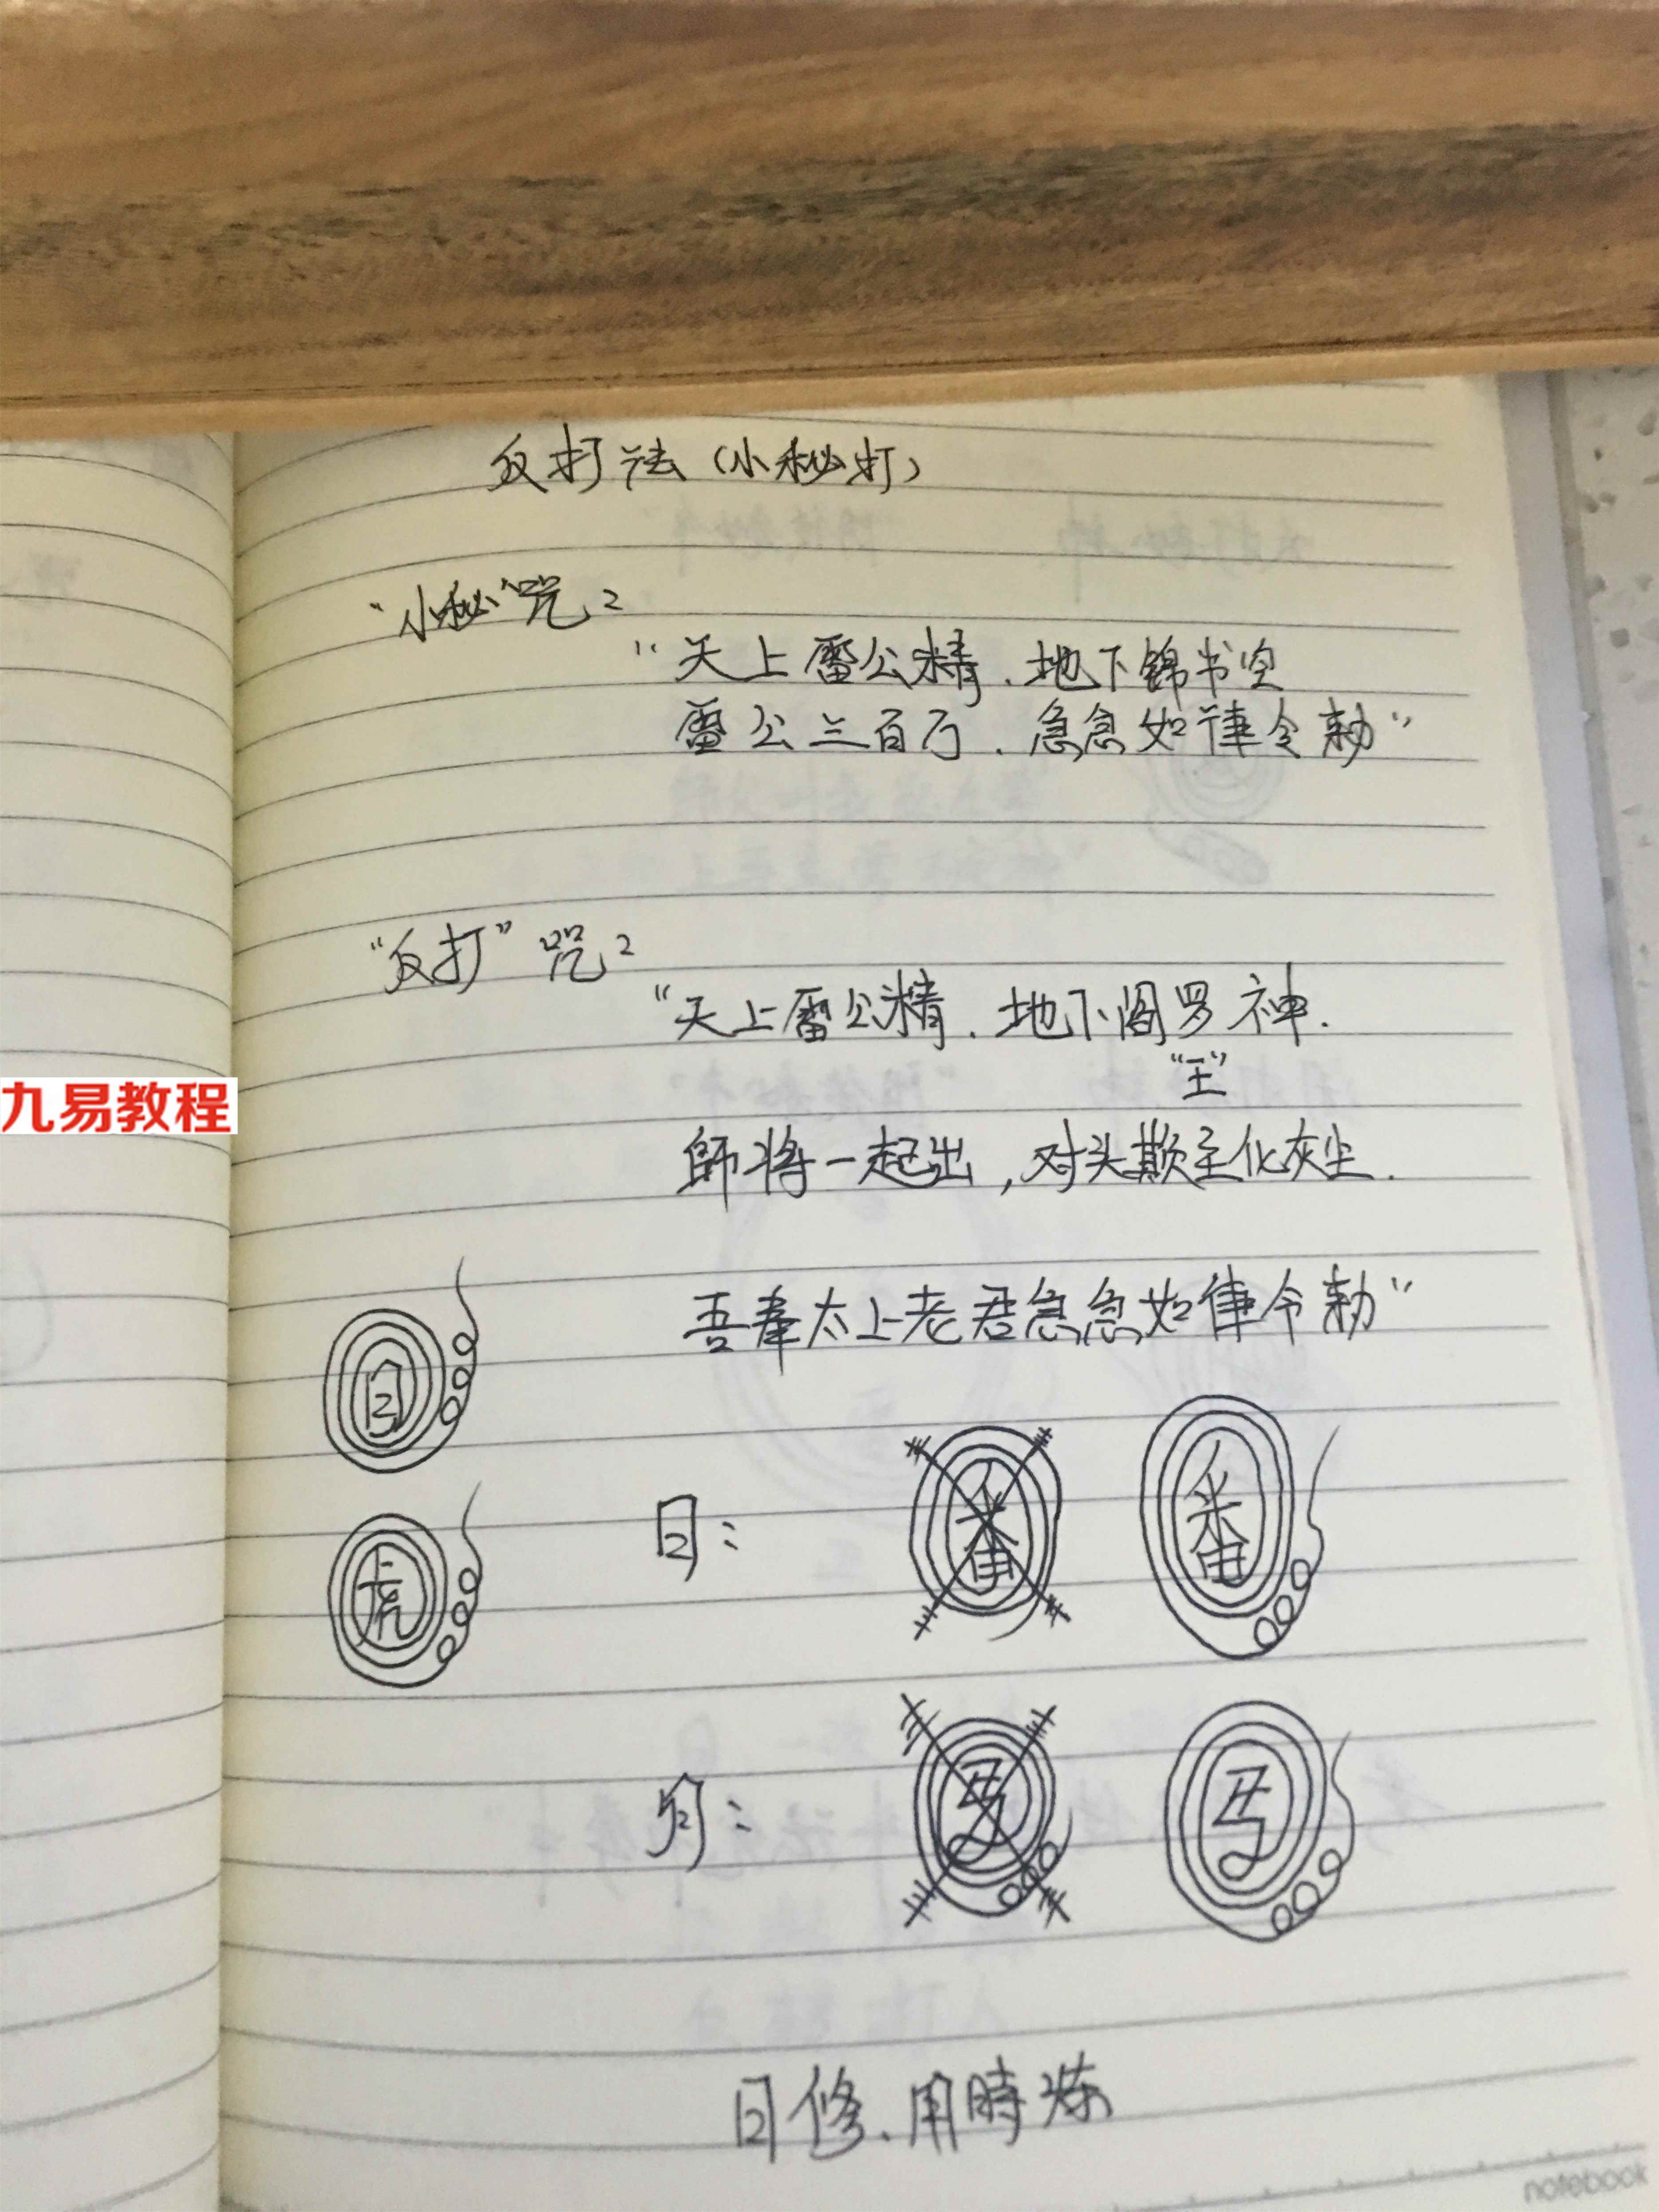 反打法（小秘打）
“小秘”咒：
“天上雷公精．地下锦书空
雷公三百万．急急如律令勅”
“反打”咒：
“天上雷公精．地下阎罗神．
“王”
九易教程
師将一起出，对头欺主化灰尘．
吾奉太上老君急急如律令勅”
日
虎
日：
番 番
月：
日修．用時炼
notebook